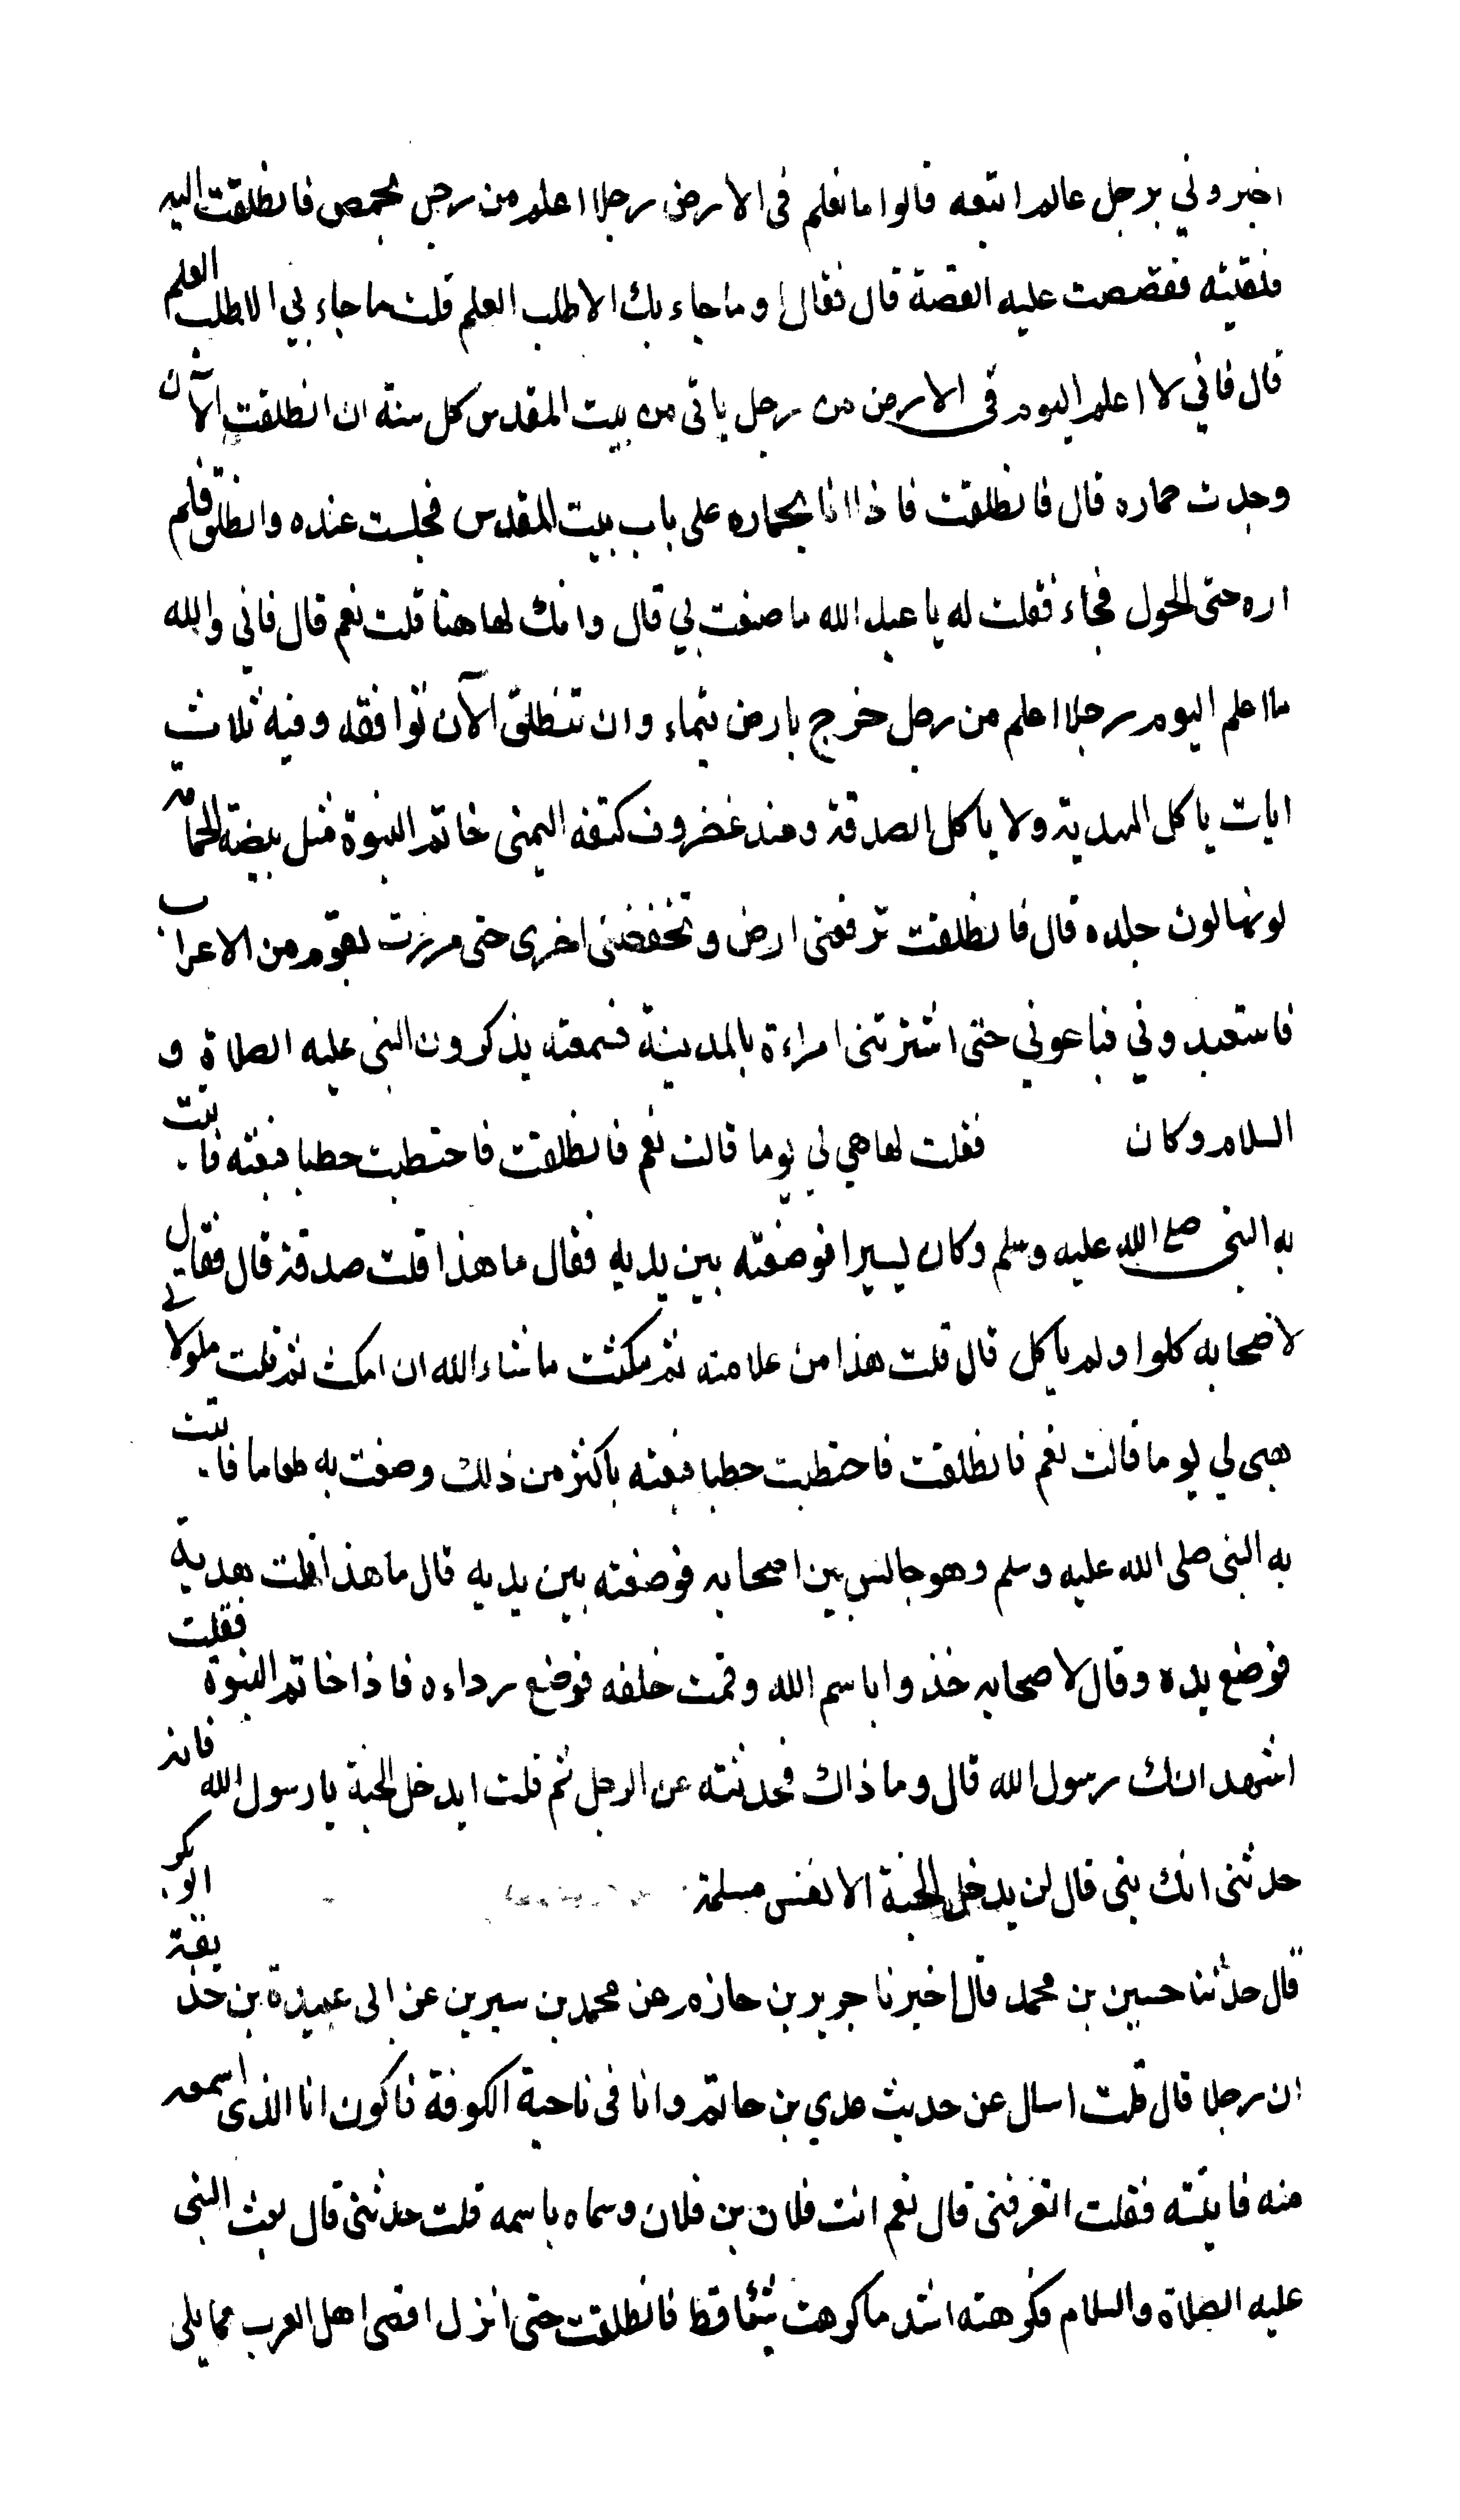 اخبروني برجل عالم اتبعه قالوا ما نعلم في الارض رجلا اعلم من رجل بحمص فانطلقت اليه
فلقيته فقصصت عليه القصة قال فقال او ما جاء بك الا طلب العلم قلت ما جاء بي الا طلب العلم
قال فاني لا اعلم اليوم في الارض من رجل ياتي من بيت المقدس كل سنة ان انطلقت الآن
وجدت حماره قال فانطلقت فاذا انا بحماره على باب بيت المقدس فجلست عنده وانطلق فلم
اره حتى الحول فجاء فقلت له يا عبد الله ما صنعت بي قال وانك لهاهنا قلت نعم قال فاني والله
ما اعلم اليوم رجلا اعلم من رجل خرج بارض تيماء وان تنطلق الآن توافقه وفيه ثلاث
ايات ياكل الهدية ولا ياكل الصدقة وعند غضروف كتفه اليمنى خاتم النبوة مثل بيضة الحمامة
لونها لون جلده قال فانطلقت ترفعني ارض وتخفضني اخرى حتى مررت بقوم من الاعراب
فاستعبدوني فباعوني حتى اشترتني امراءة بالمدينة فسمعته يذكرون النبي عليه الصلاة و
السلام وكان فقلت لها هبي لي يوما قالت نعم فانطلقت فاحتطبت حطبا فبعته فاتيت
به النبي صلى الله عليه وسلم وكان يسيرا فوضعته بين يديه فقال ما هذا قلت صدقة قال فقال
لاصحابه كلوا ولم ياكل قال قلت هذا من علامته ثم مكثت ما شاء الله ان امكث ثم قلت لمولاتي
هبي لي يوما قالت نعم فانطلقت فاحتطبت حطبا فبعته باكثر من ذلك وصنعت به طعاما فاتيت
به النبي صلى الله عليه وسلم وهو جالس بين اصحابه فوضعته بين يديه قال ما هذا قلت هدية
فوضع يده وقال لاصحابه خذوا باسم الله وقمت خلفه فوضع رداءه فاذا خاتم النبوة فقلت
اشهد انك رسول الله قال وما ذاك فحدثته عن الرجل ثم قلت ايدخل الجنة يا رسول الله فانه
حدثني انك نبي قال لن يدخل الجنة الا نفس مسلمة ابو بكر
قال حدثنا حسين بن محمد قال اخبرنا جرير بن حازم عن محمد بن سيرين عن ابي عبيدة بن حذيفة
ان رجلا قال قلت اسال عن حديث عدي بن حاتم وانا في ناحية الكوفة فاكون انا الذى اسمعه
منه فاتيته فقلت اتعرفني قال نعم انت فلان بن فلان وسماه باسمه قلت حدثني قال بعث النبي
عليه الصلاة والسلام فكرهته اشد ما كرهت شيئا قط فانطلقت حتى انزل اقصى اهل العرب مما يلي